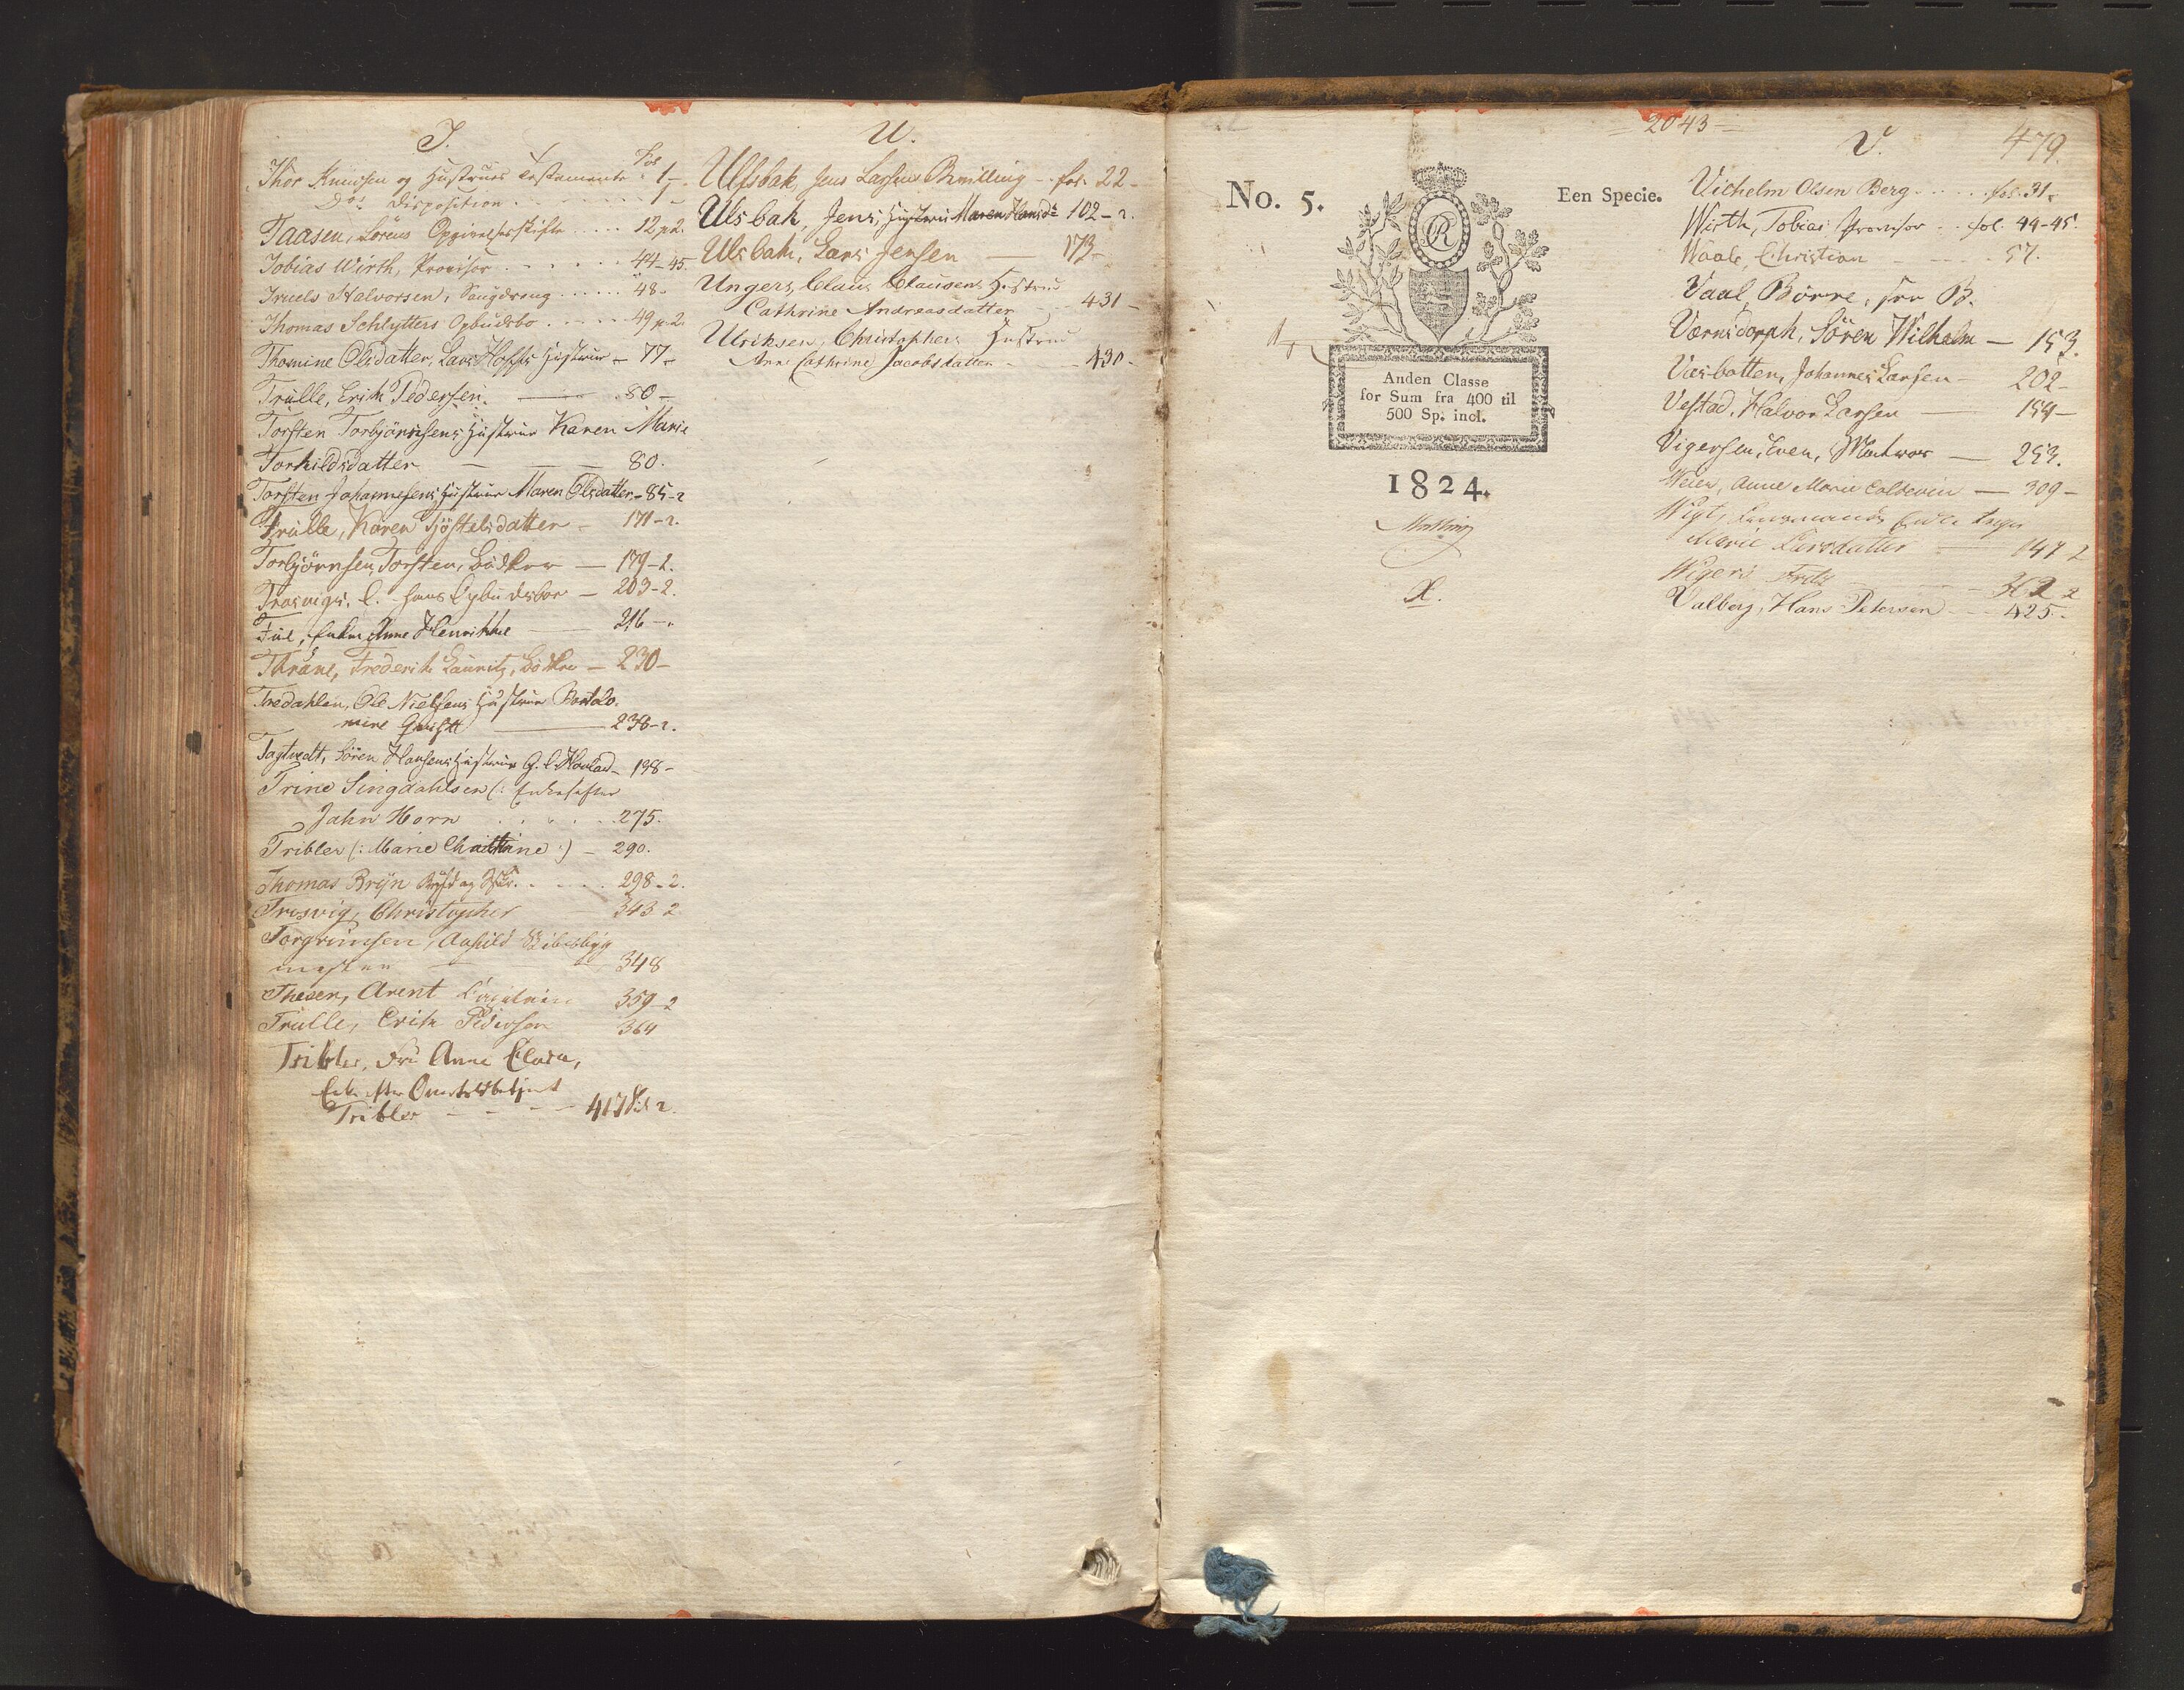 T.
Fol
Thor Knudsen og Hustrues Testamente . 1 –
Do: Disposition . . . . . . 1 –
Taasen, Sörens Opgivelsesskifte . . . . 12 p 2.
Tobias Wirth, Provisor . . . . . . 44–45.
Truels Halvorsen, Saugdreng . . . . . 48.
Thomas Schlytters Opbudsbo . . . . 49 p. 2.
Thomine Olsdatter, Lars Hoffs Hustrue – 77 –
Trulle, Erich Pedersen. — 80 –
Torsten Torbjörnsens Hustrue Karen Marie
Torkildsdatter — — 80.
Torsten Johannesens Hustrue Maren Olsdatter – 85–2
Trulle, Karen Kjöstelsdatter – 171–2.
Torbjörnsen, Torsten, Bödker — 179–2.
Trosvigs, C. Opbudsboe – 203–2.
Enke Anne Henrikke — 216 –
Thrane, Frederik Lauritz, Bödker – 230 –
Tredahlen, Ole Nielsens Hustrue
— 238–2.
Tagtvedt, Sören Hansens Hustrue G. C. – 198 –
Trine Lingdahlsen (: Enke efter
Jahn Horn . . . . . 275.
Tribler (: Marie Chatrine :) – 290.
Thomas Bryn . . . . 298–2.
Trosvig, Christopher — 343 2
Torgrimsen, Skibsbyg
mester — 348
Thesen, Arent 359–2
Trulle, Erik Pedersen 364
Tribler, Fru Anne Clara,
Enke efter Overtoldbetjent
Tribler – – – – 417 Sid 2.
U.
Ulfsbak, Jens Larsens – fol. 22 –
Ulsbak, Jens, Hustrue Maren Hansdr 102–2.
Ulsbak, Lars Jensen — 173 –
Ungers, Claus Clausens Hustrue
Cathrine Andreasdatter – 431 –
Ulriksen, Christophers Hustrue
Ann Cathrine Jacobsdatter – – 430 –
= 2043 =
479.
No. 5.
Een Specie.
R
Anden Classe
for Sum fra 400 til
500 Sp: incl.
1824.
V.
Vilhelm Olsen Berg . . . . . fol. 31.
Wirth, Tobias Provisor . . fol. 44–45.
Waale, Christian – – – – 57.
Vaal, Börre, see B.
Værnsdorph, Sören Wilhelm — 153.
Vasbotten, Johannes Larsen 202 –
Vestad, Halvor Larsen — 154 –
Vigersen, Even, — 253.
Weier, Anne Marie Coldevin — 309 –
Wigt, Lensmands Enke
Marie Larsdatter — 147 2
Wigers Fritz — 362 2
Valberg, Hans Petersen – – 425.